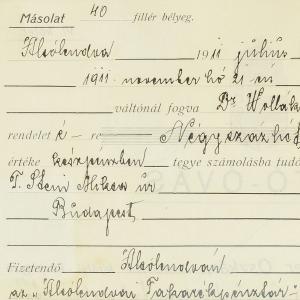 Másolat 40 fillér bélyeg.
Alsólendva 1911 július
1911. november hó 21-én
váltónál fogva Dr Wollák
rendelet é – re Négyszazhó
értéke készpénzben tegye számolásba tudó
T. Steni Miksa úr
Budapest
Fizetendő Alsólendván
az "Alsólendvai Takarékpénztár"